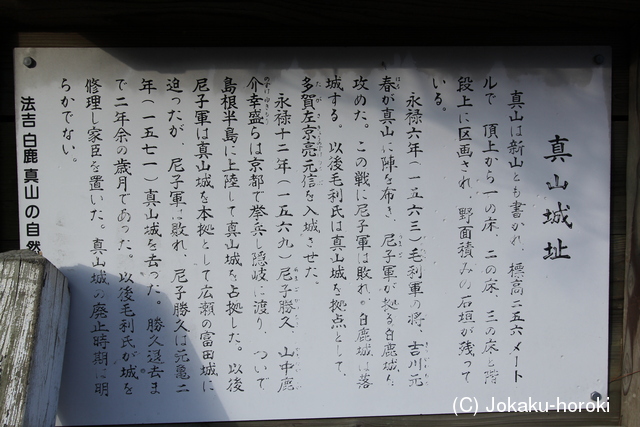 真山城址
真山は新山とも書かれ、標高二五六メート
ルで、頂上から一の床、二の床、三の床と階
段上に区画され、野面積みの石垣が残って
いる。
永禄六年(一五六三)毛利軍の将、吉川元
春が真山に陣を布き、尼子軍が拠る白鹿城を
攻めた。この戦に尼子軍は敗れ、白鹿城は落
城する。以後毛利氏は真山城を拠点として、
多賀左京亮元信を入城させた。
永禄十二年(一五六九)尼子勝久、山中鹿
介幸盛らは京都で挙兵し隠岐に渡り、ついで
島根半島に上陸して真山城を占拠した。以後
尼子軍は真山城を本拠として広瀬の富田城に
迫ったが、尼子軍は敗れ、尼子勝久は元亀二
年(一五七一)真山城を去った。勝久退去ま
で二年余の歳月であった。以後毛利氏が城を
修理し家臣を置いた。真山城の廃止時期は明
らかでない。
法吉 白鹿 真山の自然
(C) Jokaku-horoki